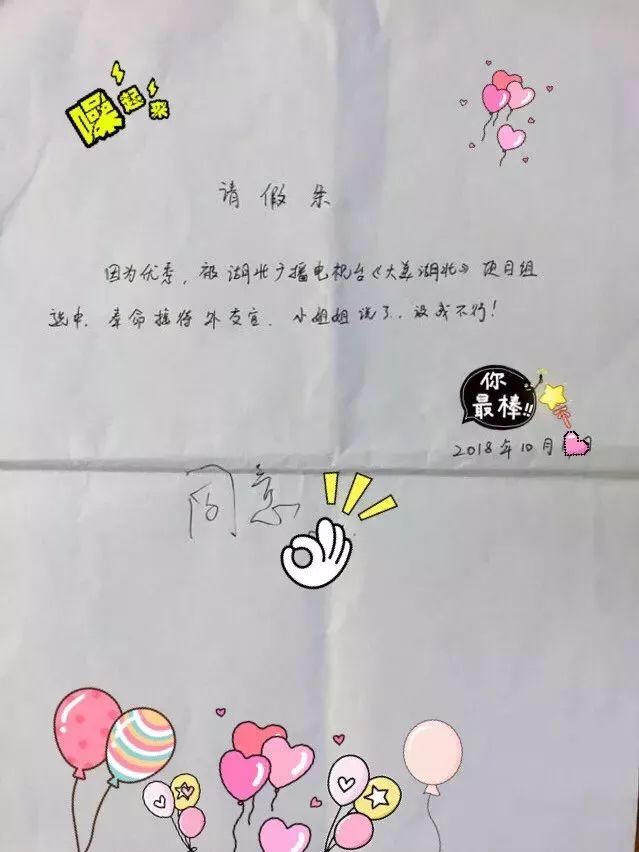 噪起来
请假条
因为优秀，被湖北广播电视台《大美湖北》项目组
选中，奉命接待外交官，小姐姐说了，没我不行！
你
最棒!!
2018年10月 日
同意